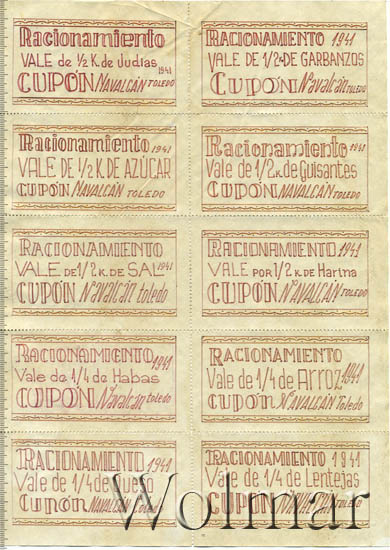 Racionamiento
VALE de 1/2 K. de Judías 1941
CUPÓN NAVALCÁN TOLEDO
RACIONAMIENTO 1941
VALE DE 1/2 K. DE GARBANZOS
CUPÓN Navalcán TOLEDO
Racionamiento 1941
VALE DE 1/2 K. DE AZÚCAR
CUPÓN NAVALCÁN TOLEDO
Racionamiento 1941
Vale de 1/2 K. de Guisantes
CUPÓN NAVALCÁN TOLEDO
RACIONAMIENTO
VALE DE 1/2 K. DE SAL 1941
CUPÓN Navalcán toledo
RACIONAMIENTO 1941
VALE POR 1/2 K. DE Harina
CUPÓN NAVALCÁN TOLEDO
RACIONAMIENTO 1941
Vale de 1/4 de Habas
CUPÓN NAVALCÁN toledo
RACIONAMIENTO
Vale de 1/4 de Arroz 1941
CUPÓN NAVALCÁN Toledo
RACIONAMIENTO 1941
Vale de 1/4 de Queso
Cupón NAVALCÁN TOLEDO
RACIONAMIENTO 1941
Vale de 1/4 de Lentejas
CUPÓN NAVALCÁN TOLEDO
Wolmar